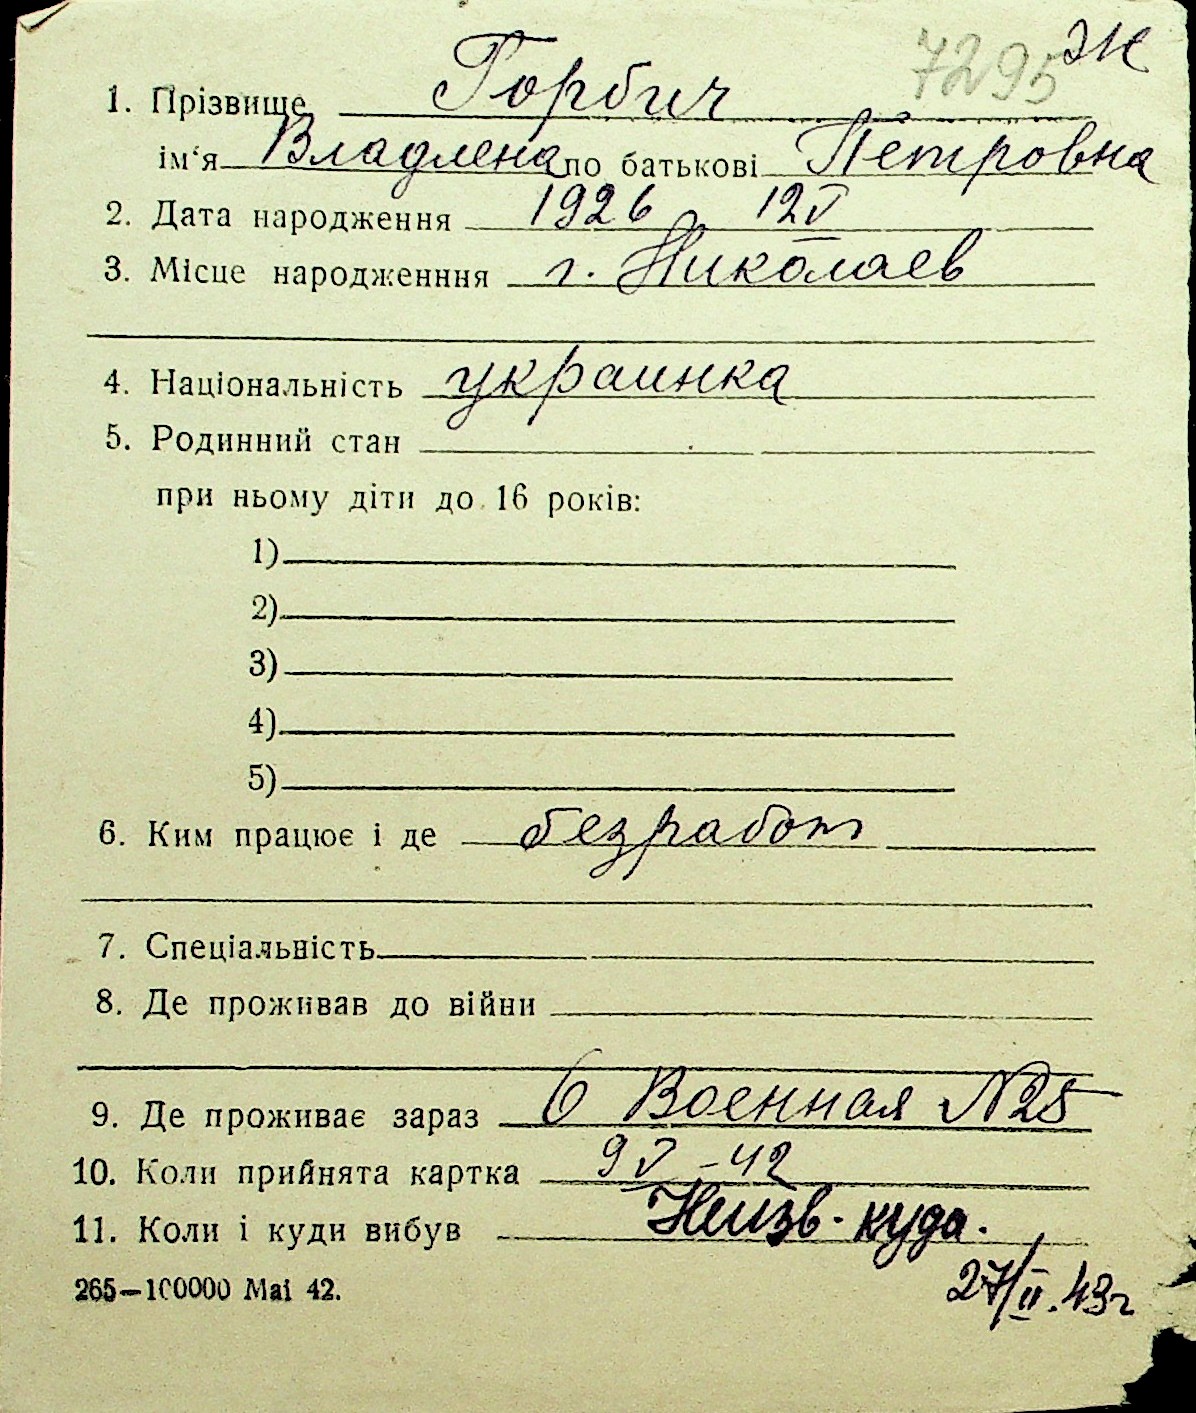 7295 Ж
1. Прізвище Горбич
ім‘я Владлена по батькові Петровна
2. Дата народження 1926 12 V
3. Місце народженння г. Николаев
4. Національність украинка
5. Родинний стан
при ньому діти до 16 років:
1)
2)
3)
4)
5)
6. Ким працює і де безработ
7. Спеціальність
8. Де проживав до війни
9. Де проживає зараз 6 Военная N25
10. Коли прийнята картка 9 V - 42
11. Коли і куди вибув Неизв. куда.
265—100000 Mai 42.
27/II. 43 г